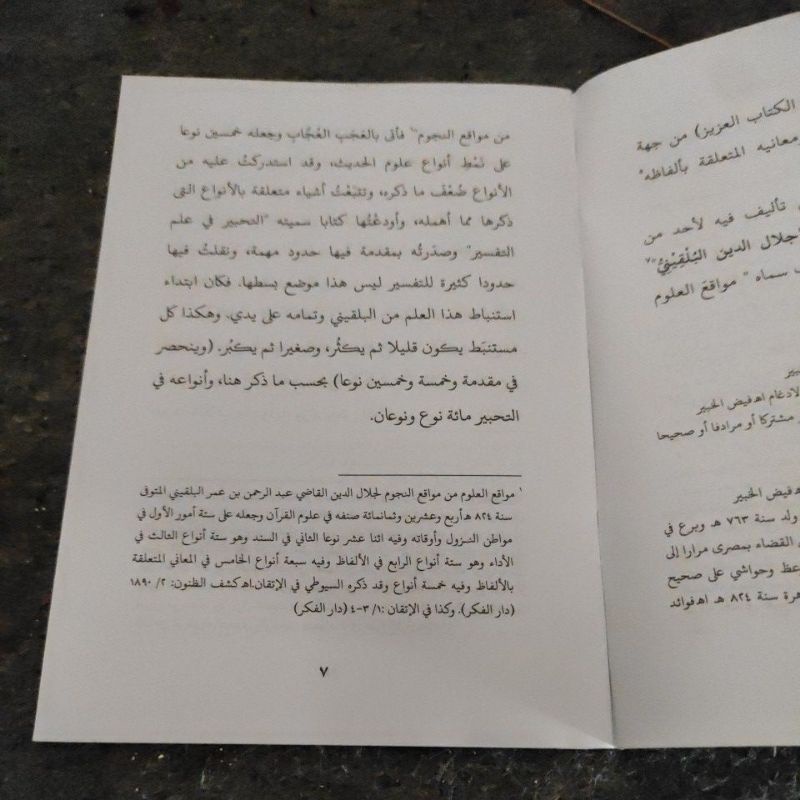 الكتاب العزيز) من جهة
معانيه المتعلقة بألفاظه
تأليف فيه لأحد من
جلال الدين البُلْقِيْنِيُّ
سماه " مواقعَ العلوم
لادغام اهـ فيض الخبير
مشتركا أو مرادفا أو صحيحا
اهـ فيض الخبير
ولد سنة ٧٦٣ هـ وبرع في
القضاء بمصرى مرارا إلى
وحواشي على صحيح
سنة ٨٢٤ هـ اهـ فوائد
من مواقع النجوم" فأتى بالعَجَب العُجَاب وجعله خمسين نوعا
على نَمَطِ أنواع علوم الحديث، وقد استدركتُ عليه من
الأنواع ضُعْفَ ما ذكره، وتتبَعْتُ أشياء متعلقة بالأنواع التى
ذكرها مما أهمله، وأودعْتُها كتابا سميته "التحبير في علم
التفسير" وصدَرتُه بمقدمة فيها حدود مهمة، ونقلتُ فيها
حدودا كثيرة للتفسير ليس هذا موضع بسطها. فكان ابتداء
استنباط هذا العلم من البلقيني وتمامه على يدي. وهكذا كل
مستنبَط يكون قليلا ثم يكثُر، وصغيرا ثم يكبُر. (وينحصر
في مقدمة وخمسة وخمسين نوعا) بحسب ما ذكر هنا، وأنواعه في
التحبير مائة نوع ونوعان.
١ مواقع العلوم من مواقع النجوم لجلال الدين القاضي عبد الرحمن بن عمر البلقيني المتوفى
سنة ٨٢٤ هـ أربع وعشرين وثمانمائة صنفه في علوم القرآن وجعله على ستة أمور الأول في
مواطن النـزول وأوقاته وفيه اثنا عشر نوعا الثاني في السند وهو ستة أنواع الثالث في
الأداء وهو ستة أنواع الرابع في الألفاظ وفيه سبعة أنواع الخامس في المعاني المتعلقة
بالألفاظ وفيه خمسة أنواع وقد ذكره السيوطي في الإتقان.اهـ كشف الظنون: ٢/ ١٨٩٠
(دار الفكر). وكذا في الإتقان :١/ ٣-٤ (دار الفكر)
٧